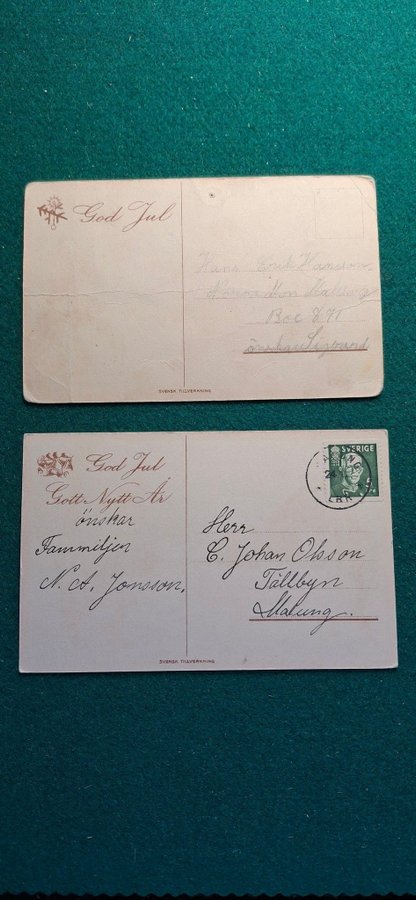 God Jul
Hans Erik Hansson
Norra Mon Malung
Box 871
önskar Sigvard
SVENSK TILLVERKNING
God Jul
Gott Nytt År
önskar
Fammiljen
N. A. Jonsson.
SVERIGE
5
Herr
C. Johan Olsson
Tällbyn
Malung.
SVENSK TILLVERKNING